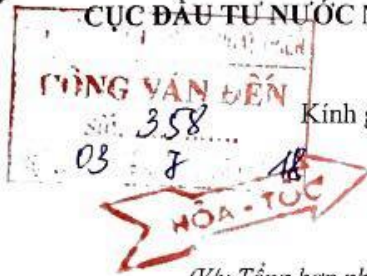 CỤC ĐẦU TƯ NƯỚC N
CÔNG VĂN ĐẾN
Kính g
Số: 358
03 7 18
HỎA - TỐC
(V/v: Tổng hợp nh